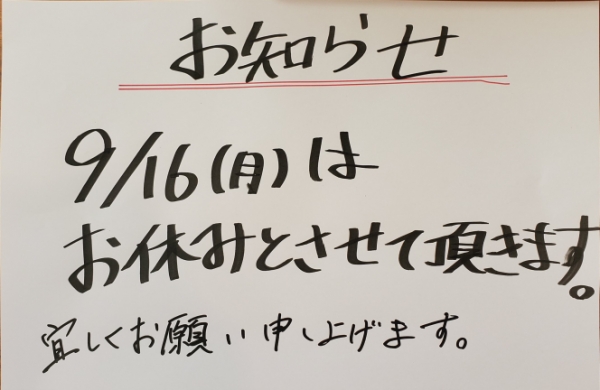 お知らせ
9/16(月)は
お休みとさせて頂きます。
宜しくお願い申し上げます。